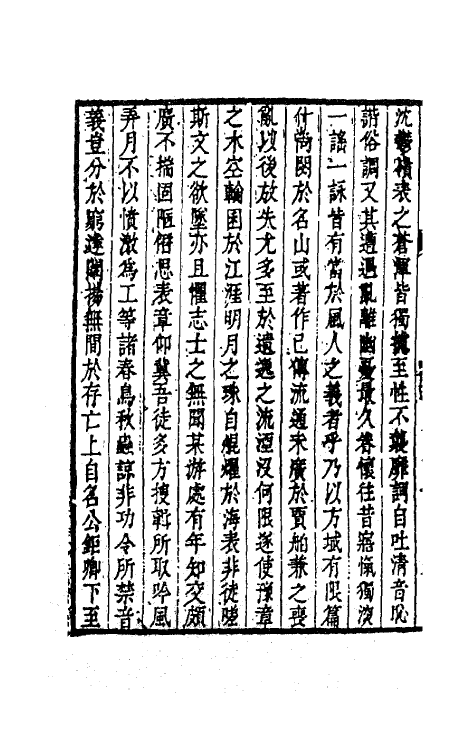 沈鬱積表之蒼渾皆獨攄至性不襲靡詞自吐清音恥
諧俗調又其遭遇亂離幽憂最久眷懷往昔寤愾獨深
一謡一詠皆有當於風人之義者乎乃以方域有限篇
什尚閟於名山或著作已傳流通未廣於賈舶兼之喪
亂以後放失尤多至於遺逸之流湮沒何限遂使豫章
之木空輪囷於江涯明月之珠自焜燿於海表非徒曀
斯文之欲墜亦且懼志士之無聞某游處有年知交頗
廣不揣固陋俯思表章仰冀吾徒多方搜輯所取吟風
弄月不以憤激爲工等諸春鳥秋蟲諒非功令所禁音
義豈分於窮達闡揚無間於存亡上自名公鉅卿下至